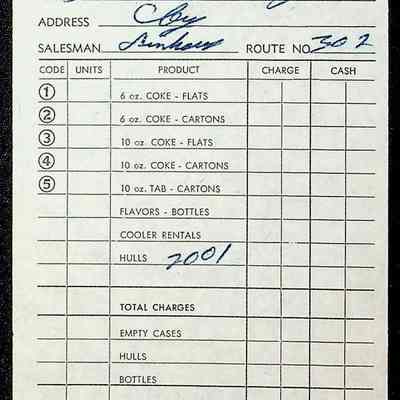 ADDRESS Cloy
SALESMAN ROUTE NO. 302
CODE UNITS PRODUCT CHARGE CASH
1 6 oz. COKE - FLATS
2 6 oz. COKE - CARTONS
3 10 oz. COKE - FLATS
4 10 oz. COKE - CARTONS
5 10 oz. TAB - CARTONS
FLAVORS - BOTTLES
COOLER RENTALS
HULLS 2001
TOTAL CHARGES
EMPTY CASES
HULLS
BOTTLES